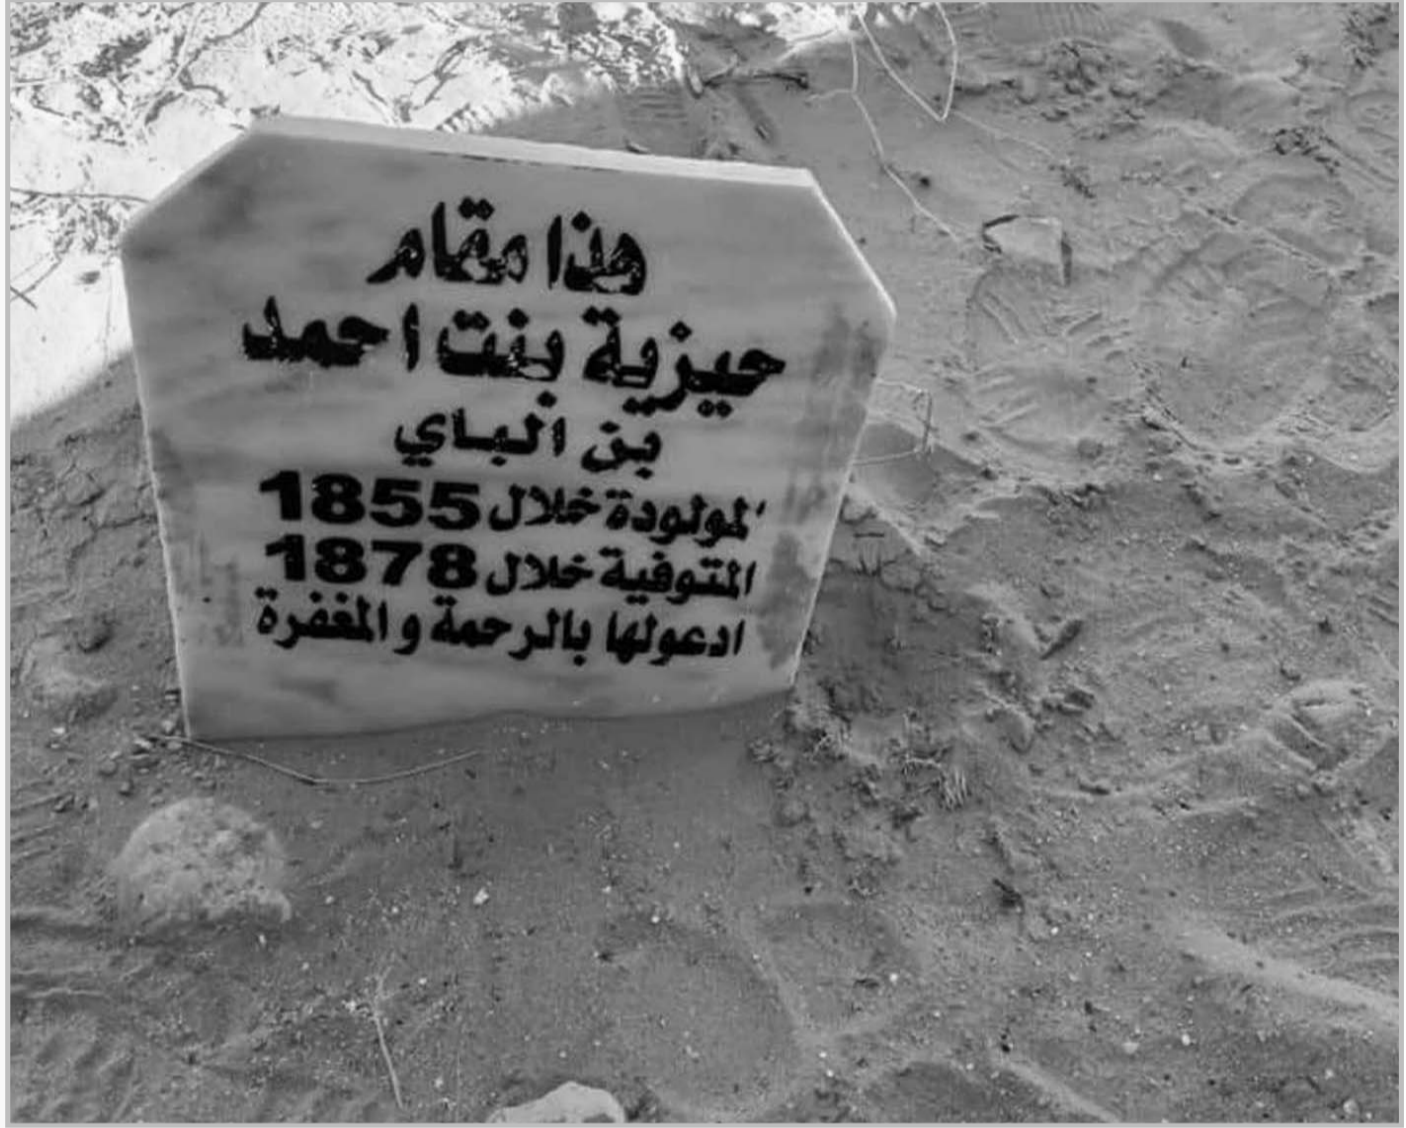 هذا مقام
حيزية بنت احمد
بن الباي
المولودة خلال 1855
المتوفية خلال 1878
ادعولها بالرحمة و المغفرة